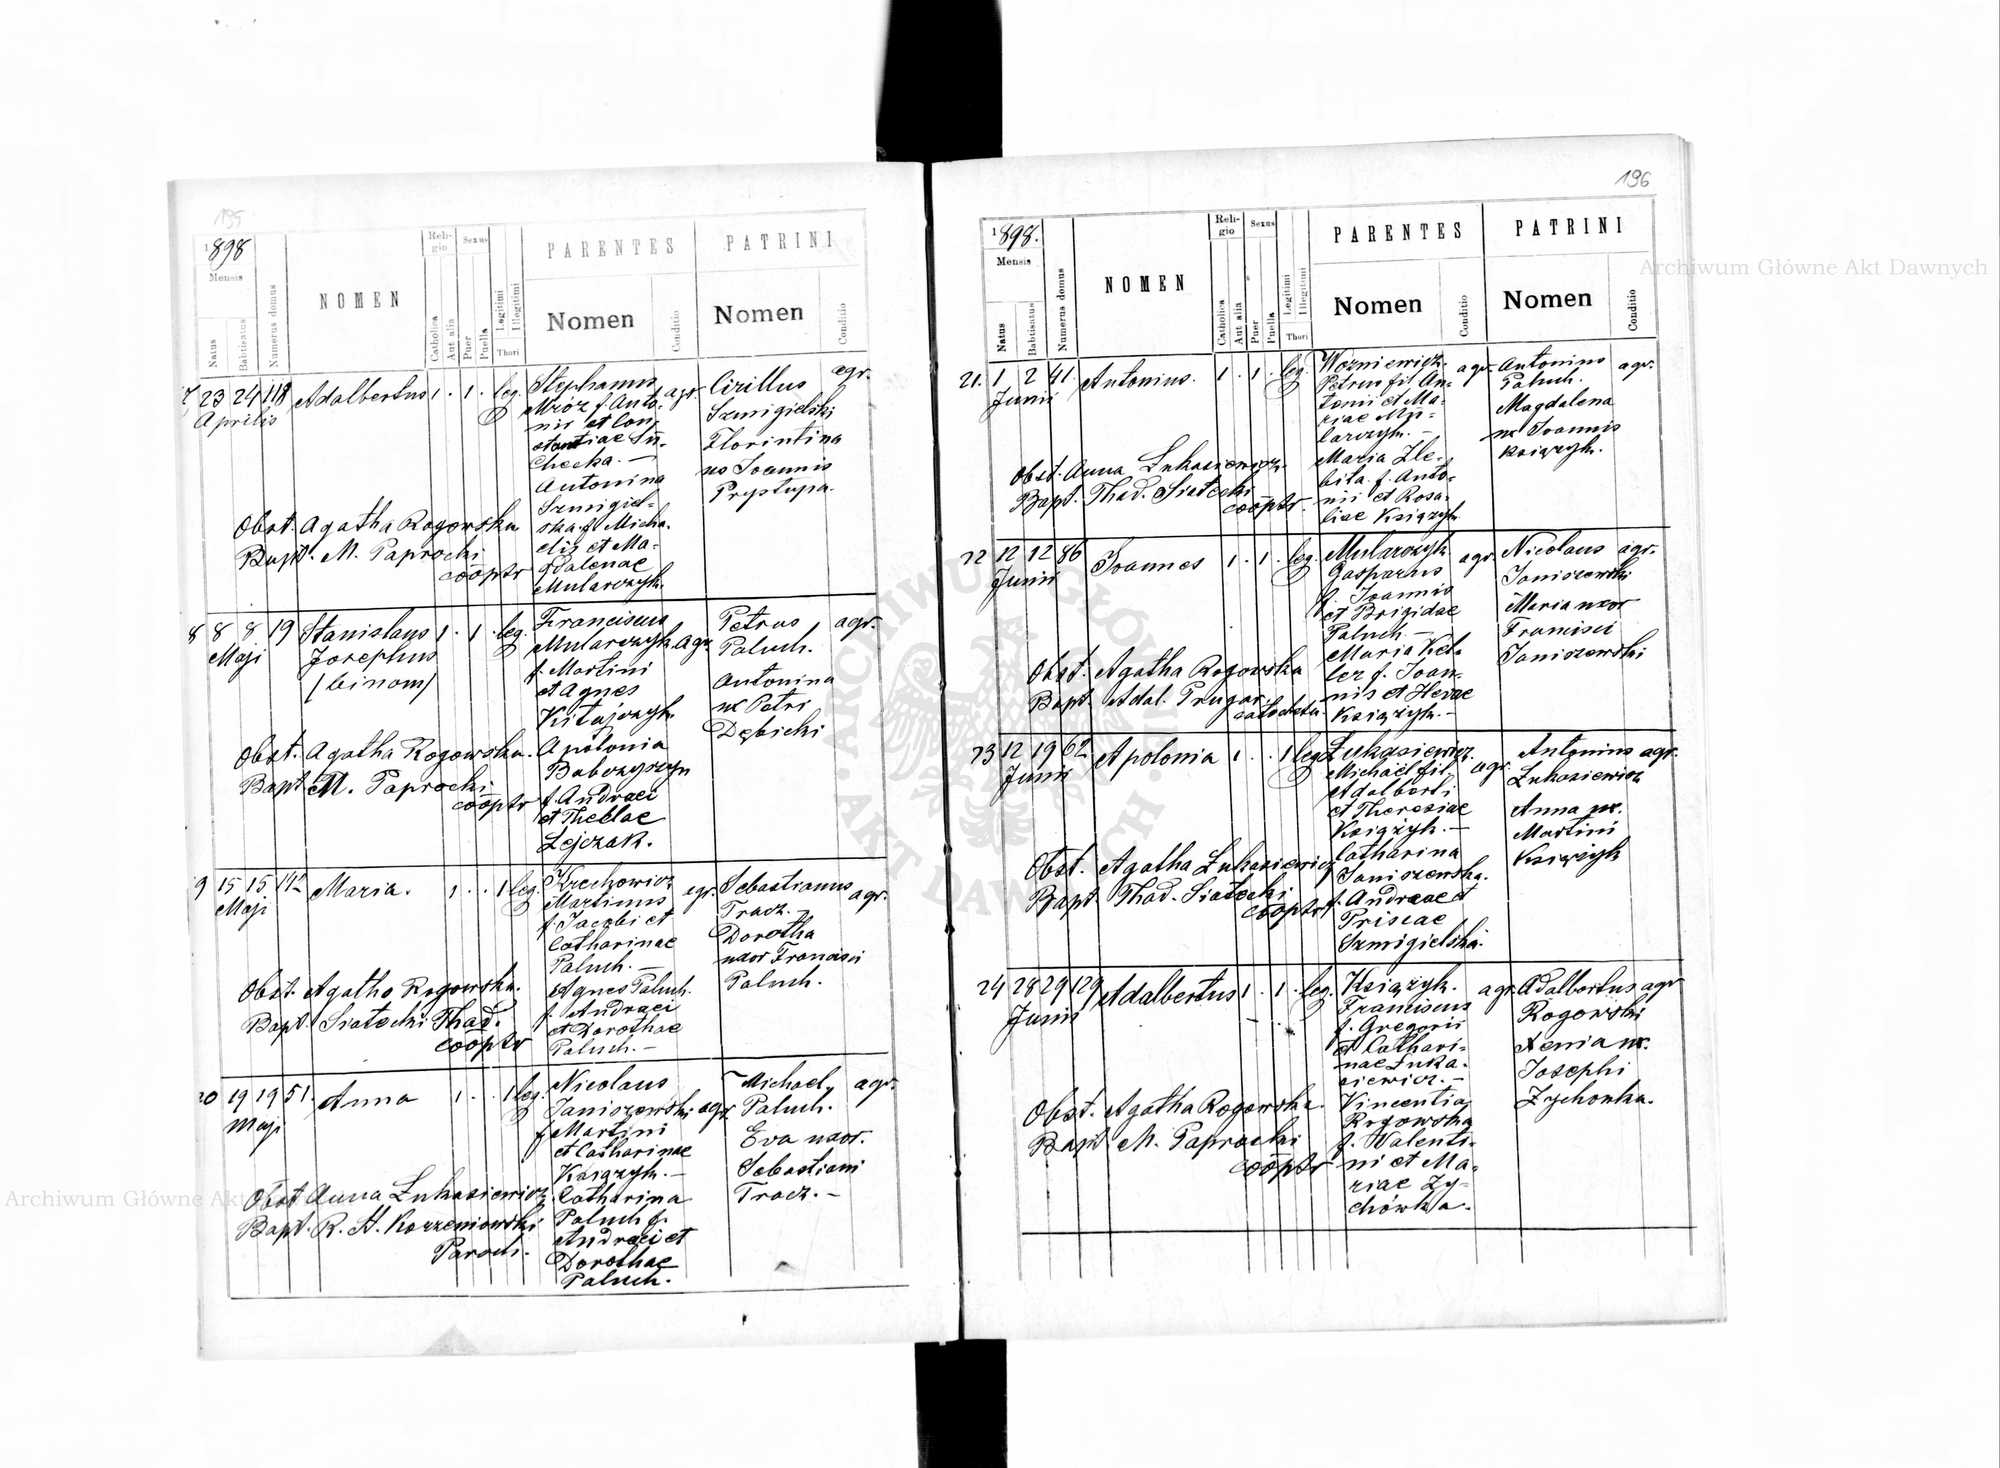 195
1898
Mensis
Natus
Babtisatus
Numerus domus
NOMEN
Reli-
gio
Catholica
Aut alia
Sexus
Puer
Puella
Legitimi
Illegitimi
Thori
PARENTES
Nomen
Conditio
PATRINI
Nomen
Conditio
7 23 24 118 Adalbertus 1 . 1 . leg.
Aprilis
Stephanus agr.
Mróz f. Anto-
nii et Con-
stantiae Su-
checka. —
Antonina
Szmigiel-
ska f. Micha-
elis et Ma-
gdalenae
Mularczyk.
Cirillus agr.
Szmigielski
Florintina
ux Joannis
Prystupa.
Obst. Agatha Rogowska
Bapt. M. Paprocki
cooptr
8 8 8 19 Stanislaus 1 . 1 . leg.
Maji Josephus
(binom)
Franciscus
Mularczyk agr.
f. Martini
et Agnes
Kitajczyk.
Apolonia
Babczyszyn
f. Andraei
et Theclae
Lejczak.
Petrus agr.
Paluch.
Antonina
ux Petri
Dębicki
Obst. Agatha Rogowska.
Bapt. M. Paprocki
cooptr
9 15 15 Maria. 1 . . 1 leg.
Maji
Krechowicz agr.
Martinus
f. Jacobi et
Catharinae
Paluch. —
Agnes Paluch.
f. Andraei
et Dorothae
Paluch. —
Sebastianus agr.
Tracz. —
Dorotha
uxor Francisci
Paluch.
Obst. Agatha Rogowska.
Bapt. Siatecki Thad.
cooptr
20 19 19 51. Anna 1 . . 1 leg.
Maji
Nicolaus
Janiszewski agr.
f. Martini
et Catharinae
Książyk. —
Catharina
Paluch f.
Andraei et
Dorothae
Paluch.
Michael agr.
Paluch.
Eva uxor.
Sebastiani
Tracz. —
Obst Anna Łukasiewicz
Bapt. R. A. Korzeniowski
Paroch.
196
1898.
Mensis
Natus
Babtisatus
Numerus domus
NOMEN
Reli-
gio
Catholica
Aut alia
Sexus
Puer
Puella
Legitimi
Illegitimi
Thori
PARENTES
Nomen
Conditio
PATRINI
Nomen
Conditio
21. 1 2 41. Antonius. 1 . 1 . leg.
Junii
Wozniewicz. agr.
Petrus fil An-
tonii et Ma-
riae Mu-
larczyk. —
Maria Zle-
bita f. Anto-
nii et Rosa-
liae Książyk
Antonius agr.
Paluch.
Magdalena
ux Joannis
Książyk.
Obst. Anna Łukasiewicz.
Bapt. Thad. Siatecki
cooptr.
22 12 12 86 Joannes 1 . 1 . leg.
Junii
Mularczyk agr.
Gasparus
f. Joannis
et Brigidae
Paluch —
Maria Ket-
ler f. Joan-
nis et Hevae
Książyk. —
Nicolaus agr.
Janiszewski
Maria uxor
Francisci
Janiszewski
Obst. Agatha Rogowska
Bapt. Adal. Prugar.
catecheta.
23 12 19 62 Apolonia 1 . . 1 leg.
Junii
Łukasiewicz. agr.
Michael fil.
Adalberti
et Theresiae
Książyk. —
Catharina
Janiszewska.
f. Andraeae et
Priscae
Szmigielska.
Antonius agr.
Łukasiewicz
Anna ux.
Martini
Książyk
Obst. Agatha Łukasiewicz
Bapt. Thad. Siatecki
cooptr
24 28 29 129 Adalbertus 1 . 1 . leg.
Junii
Książyk. agr.
Franciscus
f. Gregorii
et Cathari-
nae Łuka-
siewicz. —
Vincentia
Rogowska
f. Valenti-
ni et Ma-
riae Zy-
chówka.
Adalbertus agr
Rogowski
Xenia ux.
Josephi
Zychowka.
Obst. Agatha Rogowska.
Bapt M. Paprocki
cooptr
ARCHIWUM GŁÓWNE AKT DAWNYCH
Archiwum Główne Akt Dawnych
Archiwum Główne Akt